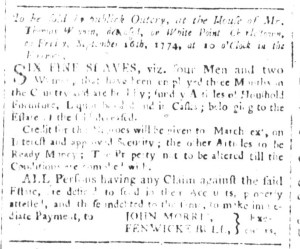 To be sold at publick Outcry, at the House of Mr.
Thomas deceased, on White Point, Charlestown,
on Friday, September 16th, 1774, at 10 o'Clock in the
SIX FINE SLAVES, viz. four Men and two
Women, that have been employed three Months in
the Country and are healthy; sundry Articles of Houshold
Furniture, Liquors and in Casks; belonging to the
Estate of the deceased.
Credit for the Negroes will be given to March next, on
Interest and approved Security; the other Articles to be
Ready Money; The Property not to be altered till the
Conditions are complied with.
ALL Persons having any Claim against the said
Estate, are desired to send in their Accounts, properly
attested, and those indebted to the same, to make immediate
Payment, to JOHN MORRIS, } Exe-
FENWICKE BULL, } cutors.